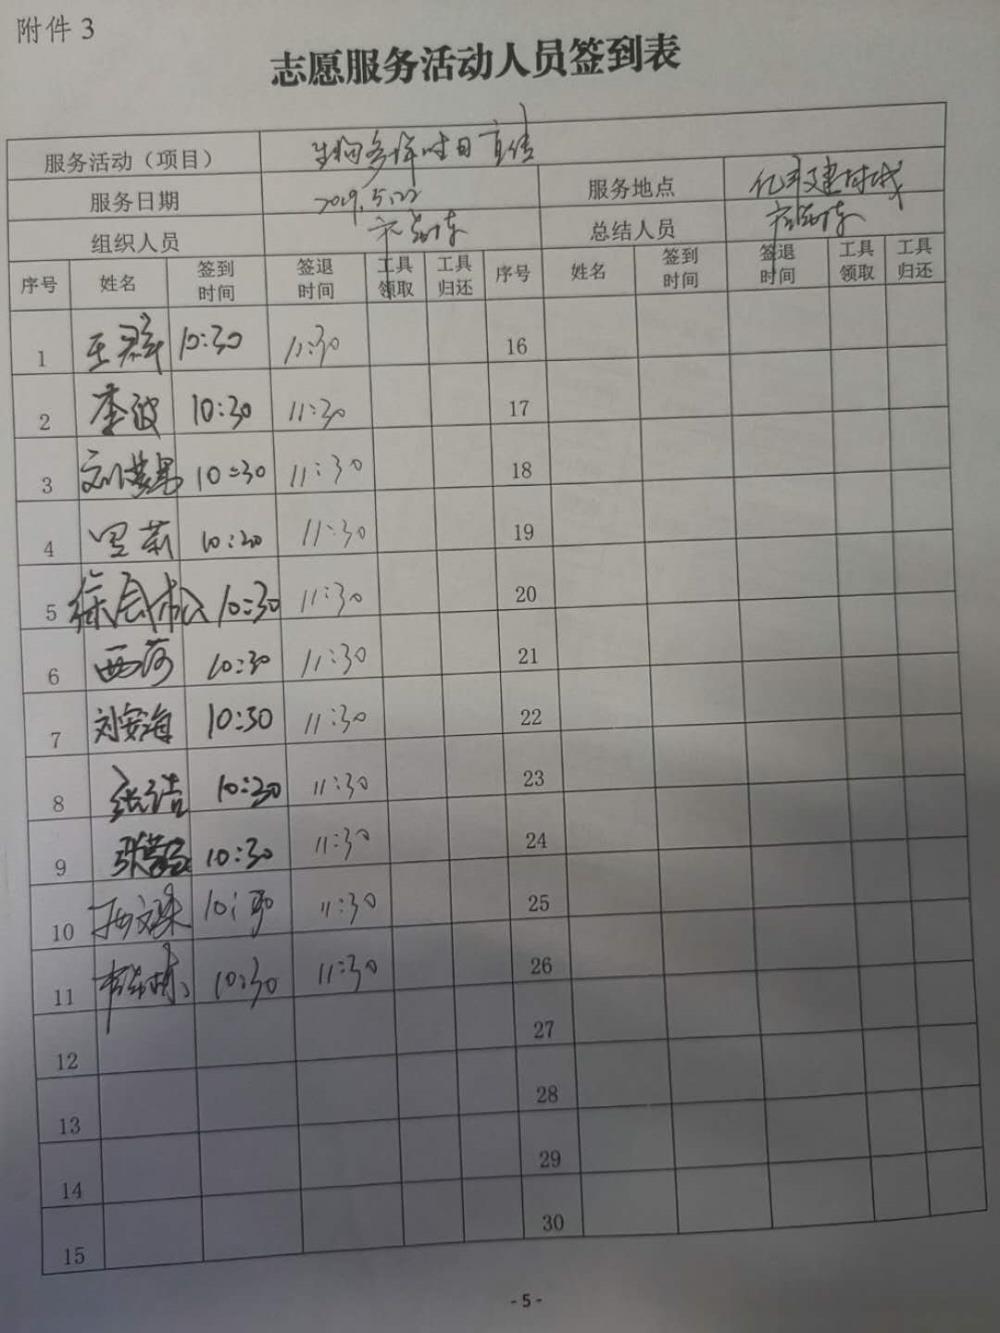 附件3
志愿服务活动人员签到表
服务活动（项目） 生物多样性日宣传
服务日期 2019.5.22 服务地点
组织人员 总结人员
序号 姓名 签到时间 签退时间 工具领取 工具归还 序号 姓名 签到时间 签退时间 工具领取 工具归还
1 王群 10:30 11:30 16
2 李波 10:30 11:30 17
3 10:30 11:30 18
4 11:30 19
5 10:30 11:30 20
6 10:30 11:30 21
7 刘安海 10:30 11:30 22
8 张洁 10:30 11:30 23
9 10:30 11:30 24
10 11:30 25
11 10:30 11:30 26
12 27
13 28
14 29
15 30
- 5 -